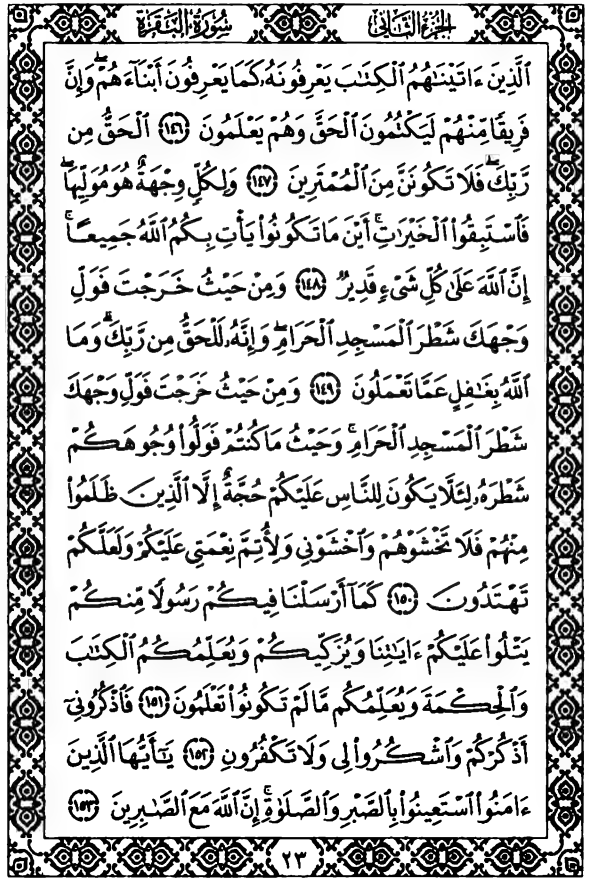 الجزء الثاني
سورة البقرة
ٱلَّذِينَ ءَاتَيْنَٰهُمُ ٱلْكِتَٰبَ يَعْرِفُونَهُۥ كَمَا يَعْرِفُونَ أَبْنَآءَهُمْۖ وَإِنَّ
فَرِيقًا مِّنْهُمْ لَيَكْتُمُونَ ٱلْحَقَّ وَهُمْ يَعْلَمُونَ ١٤٦ ٱلْحَقُّ مِن
رَّبِّكَۖ فَلَا تَكُونَنَّ مِنَ ٱلْمُمْتَرِينَ ١٤٧ وَلِكُلٍّ وِجْهَةٌ هُوَ مُوَلِّيهَاۖ
فَٱسْتَبِقُوا۟ ٱلْخَيْرَٰتِۚ أَيْنَ مَا تَكُونُوا۟ يَأْتِ بِكُمُ ٱللَّهُ جَمِيعًاۚ
إِنَّ ٱللَّهَ عَلَىٰ كُلِّ شَىْءٍ قَدِيرٌ ١٤٨ وَمِنْ حَيْثُ خَرَجْتَ فَوَلِّ
وَجْهَكَ شَطْرَ ٱلْمَسْجِدِ ٱلْحَرَامِۖ وَإِنَّهُۥ لَلْحَقُّ مِن رَّبِّكَۗ وَمَا
ٱللَّهُ بِغَٰفِلٍ عَمَّا تَعْمَلُونَ ١٤٩ وَمِنْ حَيْثُ خَرَجْتَ فَوَلِّ وَجْهَكَ
شَطْرَ ٱلْمَسْجِدِ ٱلْحَرَامِۚ وَحَيْثُ مَا كُنتُمْ فَوَلُّوا۟ وُجُوهَكُمْ
شَطْرَهُۥ لِئَلَّا يَكُونَ لِلنَّاسِ عَلَيْكُمْ حُجَّةٌ إِلَّا ٱلَّذِينَ ظَلَمُوا۟
مِنْهُمْ فَلَا تَخْشَوْهُمْ وَٱخْشَوْنِى وَلِأُتِمَّ نِعْمَتِى عَلَيْكُمْ وَلَعَلَّكُمْ
تَهْتَدُونَ ١٥٠ كَمَآ أَرْسَلْنَا فِيكُمْ رَسُولًا مِّنكُمْ
يَتْلُوا۟ عَلَيْكُمْ ءَايَٰتِنَا وَيُزَكِّيكُمْ وَيُعَلِّمُكُمُ ٱلْكِتَٰبَ
وَٱلْحِكْمَةَ وَيُعَلِّمُكُم مَّا لَمْ تَكُونُوا۟ تَعْلَمُونَ ١٥١ فَٱذْكُرُونِىٓ
أَذْكُرْكُمْ وَٱشْكُرُوا۟ لِى وَلَا تَكْفُرُونِ ١٥٢ يَٰٓأَيُّهَا ٱلَّذِينَ
ءَامَنُوا۟ ٱسْتَعِينُوا۟ بِٱلصَّبْرِ وَٱلصَّلَوٰةِۚ إِنَّ ٱللَّهَ مَعَ ٱلصَّٰبِرِينَ ١٥٣
٢٣